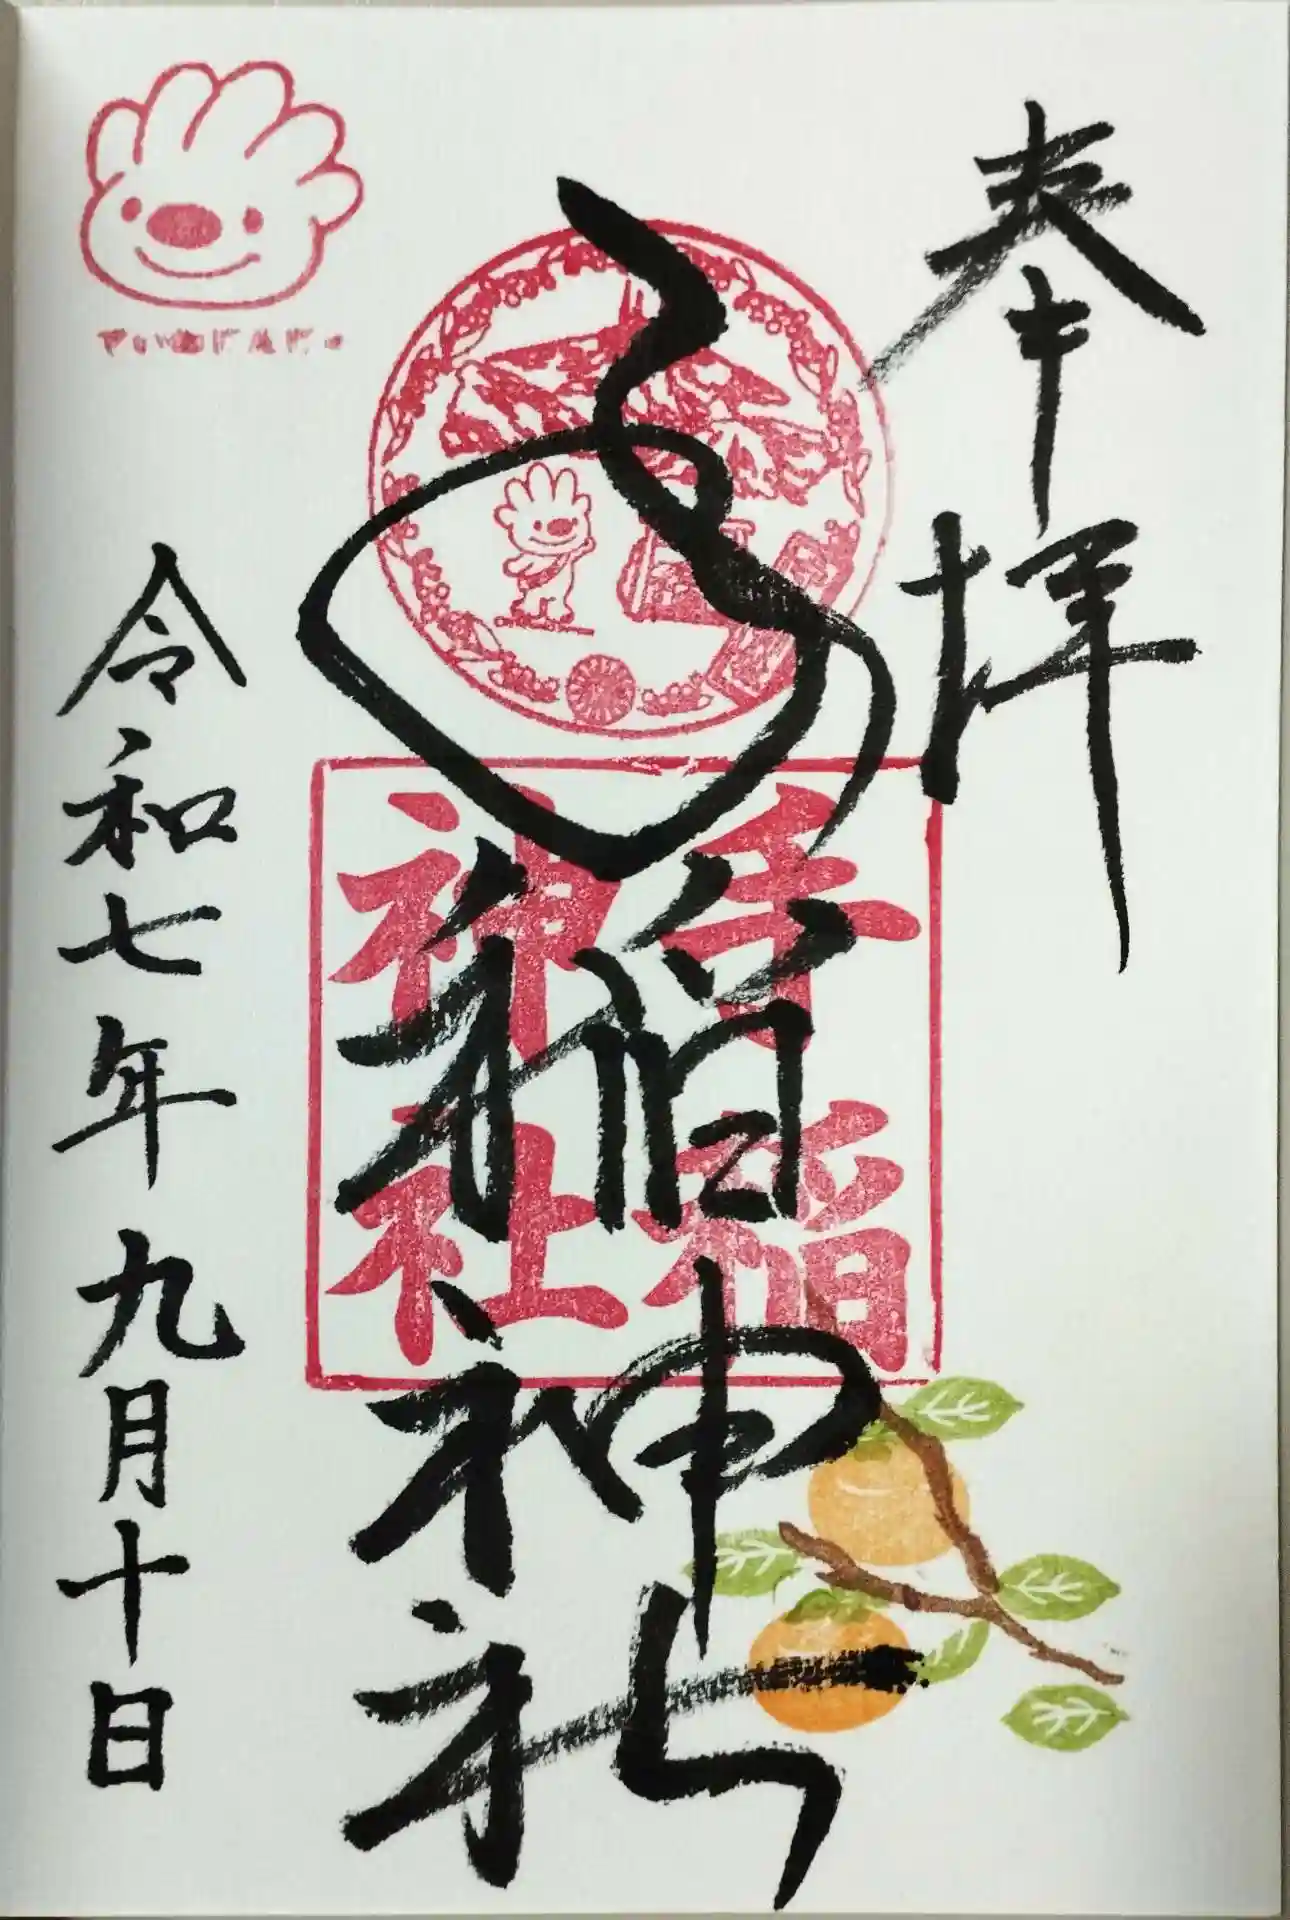 奉拝
手稲神社
手稲
神社
令和七年九月十日